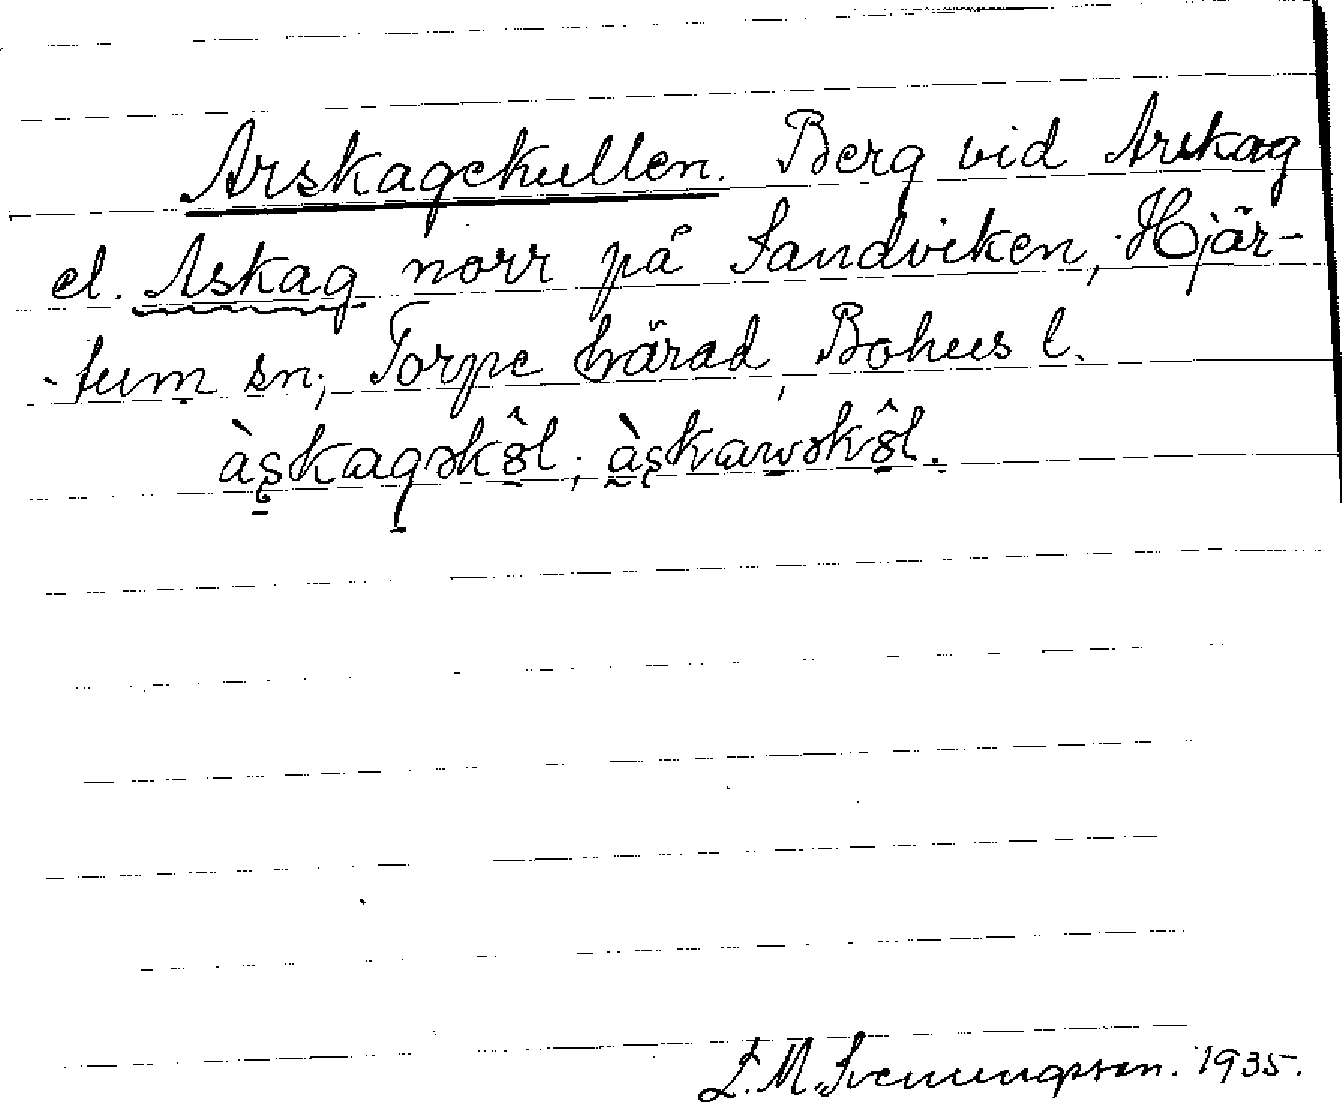 Arskagekullen. Berg vid Arskag
el. Askag norr på Sandviken, Hjär-
tum sn., Torpe härad, Bohus l.
àşkagəkôl; àşkawəkôl.
L.M. Svenungsson. 1935.